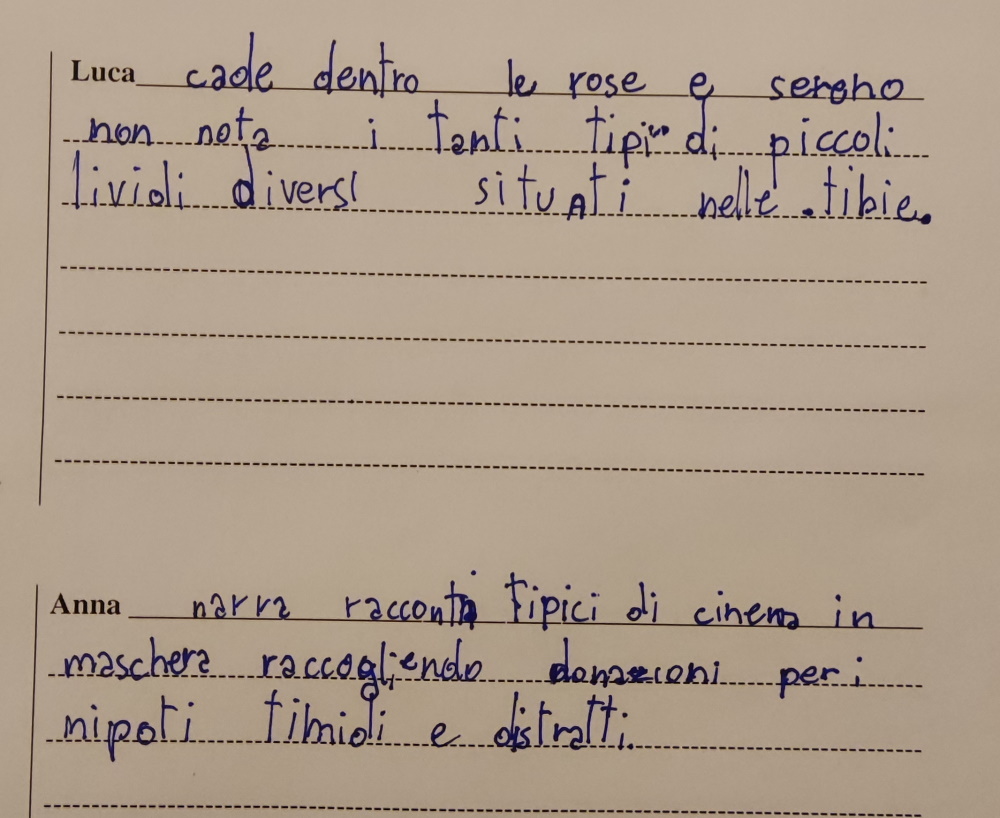 Luca cade dentro le rose e sereno
non nota i tanti tipi di piccoli
lividi diversi situati nelle tibie.
Anna narra racconti tipici di cinema in
maschera raccogliendo donazioni per i
nipoti timidi e distratti.